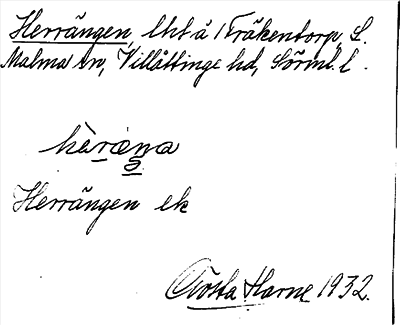 Herrängen, lht å 1 Fråkentorp, L.
Malma sn, Villåttinge hd, Sörml. l.
hæ̀ræŋa
Herrängen ek
Gösta Harne 1932.